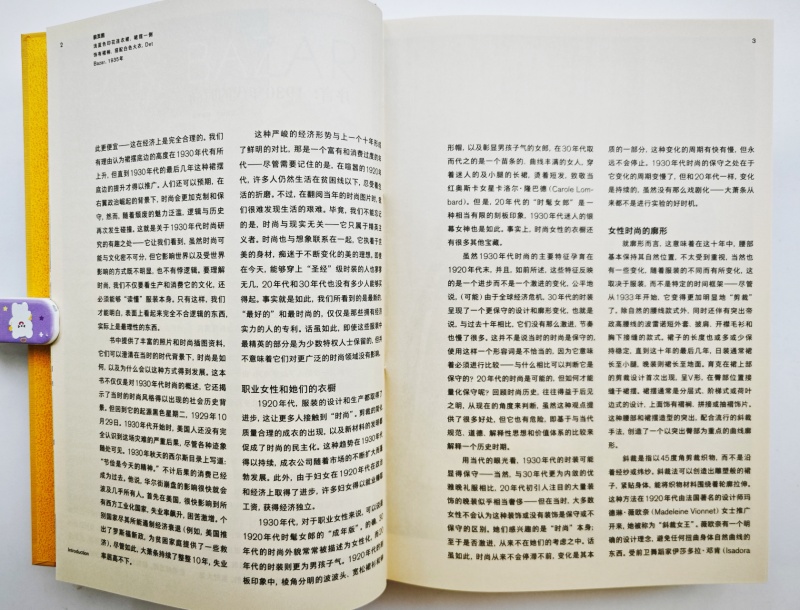 2
前页图
浅蓝色印花连衣裙,裙摆一侧
饰有褶裥,搭配白色大衣,Det
Bazar,1935年
此更便宜——这在经济上是完全合理的。我们
有理由认为裙摆底边的高度在1930年代有所
上升,但直到1930年代的最后几年这种裙摆
底边的提升才得以推广。人们还可以预期,在
右翼政治崛起的背景下,时尚会更加克制和保
守,然而,随着烟废的魅力泛滥,逻辑与历史
再次发生碰撞。这就是关于1930年代时尚研
究的有趣之处——它让我们看到,虽然时尚可
能与文化密不可分,但它影响世界以及受世界
影响的方式既不明显,也不有悖逻辑。要理解
时尚,我们不仅要看生产和消费它的文化,还
必须能够“读懂”服装本身。只有这样,我们
才能明白,表面上看起来完全不合逻辑的东西,
实际上是最理性的东西。
书中提供了丰富的照片和时尚插图资料,
它们可以澄清在当时的时代背景下,时尚是如
何,以及为什么会以这种方式得到发展。这本
书不仅仅是对1930年代时尚的概述,它还揭
示了当时的时尚风格得以出现的社会历史背
景。但回到它的起源黑色星期二,1929年10
月29日。1930年代开始时,美国人还没有完
全认识到这场灾难的严重后果,尽管各种迹象
随处可见。1930年秋天的西尔斯目录上写道:
“节俭是今天的精神。”不计后果的消费已经
成为过去,他说,华尔街崩盘的影响很快就会
波及几乎所有人。首先在美国,很快影响到所
有西方工业化国家,失业率飙升,困苦激增。个
别国家尽其所能遏制经济衰退(例如,美国推
出了罗斯福新政,为贫困家庭提供了一些救
济),尽管如此,大萧条持续了整整10年,失业
率居高不下。
Introduction
这种严峻的经济形势与上一个十年形成
了鲜明的对比,那是一个富有和消费过度的年
代——尽管需要记住的是,在喧嚣的1920年
代,许多人仍然生活在贫困线以下,忍受着生
活的折磨。不过,在翻阅当年的时尚图片时,我
们很难发现生活的艰难。毕竟,我们不能忘记
的是,时尚与现实无关——它只属于精英主
义者。时尚也与想象联系在一起,它执着于完
美的身材,痴迷于不断变化的美的理想。即使
在今天,能够穿上“圣经”级时装的人也寥寥
无几,20年代和30年代也没有多少人能够买
得起。事实就是如此,我们所看到的是最新的、
“最好的”和最时尚的,仅仅是那些拥有经济
实力的人的专利。话虽如此,即使这些服装中
最精英的部分是为少数特权人士保留的,但并
不意味着它们对更广泛的时尚领域没有影响。
职业女性和她们的衣橱
1920年代,服装的设计和生产都取得了
进步,这让更多人接触到“时尚”。剪裁的简化、
质量合理的成衣的出现,以及新材料的发展都
促成了时尚的民主化。这种趋势在1930年代
得以持续,成衣公司随着市场的不断扩大而蓬
勃发展。此外,由于妇女在1920年代在政治
和经济上取得了进步,许多妇女得以就业赚取
工资,获得经济独立。
1930年代,对于职业女性来说,可以说是
1920年代时髦女郎的“成年版”,的确,30
年代的时尚外貌常常被描述为女性化,而20
年代的时装则更为男孩子气。1920年代的刻
板印象中,棱角分明的波波头、宽松裙衫和钟
3
形帽,以及彰显男孩子气的女郎,在30年代取
而代之的是一个苗条的、曲线丰满的女人,穿
着迷人的及小腿的长裙,烫着短发,致敬当
红奥斯卡女星卡洛尔·隆巴德(Carole Lom-
bard)。但是,20年代的“时髦女郎”是一
种相当有限的刻板印象,1930年代迷人的银
幕女神也是如此。事实上,时尚女性的衣橱还
有很多其他宝藏。
虽然1930年代时尚的主要特征孕育在
1920年代末,并且,如前所述,这些特征反映
的是一个进步而不是一个激进的变化,公平地
说,(可能)由于全球经济危机,30年代的时装
呈现了一个更保守的设计和廓形变化,也就是
说,与过去十年相比,它们没有那么激进,节奏
也慢了很多。这并不是说当时的时尚是保守的,
使用这样一个形容词是不恰当的,因为它意味
着必须进行比较——与什么相比可以判断它是
保守的?20年代的时尚是可能的,但如何才能
量化保守呢?回顾时尚历史,往往得益于后见
之明,从现在的角度来判断,虽然这种观点提
供了很多好处,但它也有危险,即基于与当代
规范、道德、解释性思想和价值体系的比较来
解释一个历史时期。
用当代的眼光看,1930年代的时装可能
显得保守——当然,与30年代更为内敛的优
雅晚礼服相比,20年代初引人注目的大量装
饰的晚装似乎相当奢侈——但在当时,大多数
女性不会认为这种装饰或没有装饰是保守或不
保守的区别。她们感兴趣的是“时尚”本身;
至于是否激进,从来不在她们的考虑之中。话
虽如此,时尚从来不会停滞不前,变化是其本
质的一部分,这种变化的周期有快有慢,但永
远不会停止。1930年代时尚的保守之处在于
它变化的周期变慢了,但和20年代一样,变化
是持续的,虽然没有那么戏剧化——大萧条从
来都不是进行实验的好时机。
女性时尚的廓形
就廓形而言,这意味着在这十年中,腰部
基本保持其自然位置,不太受到重视,当然也
有一些变化,随着服装的不同而有所变化,这
取决于服装,而不是特定的时间框架——尽管
从1933年开始,它变得更加明显地“剪裁”
了。除自然的腰线款式外,同时还伴有突出帝
政高腰线的波蕾诺短外套、披肩、开襟毛衫和
胸下接缝的款式。裙子的长度也或多或少保
持稳定,直到这十年的最后几年,日装通常裙
长至小腿,晚装则裙长至地面。育克在裙上部
的剪裁设计首次出现,呈V形,在臀部位置接
缝于裙摆。裙摆通常是分层式、阶梯式或荷叶
边式的设计,上面饰有褶裥、拼接或抽褶饰片。
这种腰部和裙摆造型的突出,配合流行的斜裁
手法,创造了一个以突出臀部为重点的曲线廓
形。
斜裁是指以45度角剪裁织物,而不是沿
着经纱或纬纱。斜裁法可以创造出雕塑般的裙
子,紧贴身体,能将织物材料围绕着轮廓拉伸。
这种方法在1920年代由法国著名的设计师玛
德琳·薇欧奈(Madeleine Vionnet)女士推广
开来,她被称为“斜裁女王”。薇欧奈有一个明
确的设计理念,避免任何扭曲身体自然曲线的
东西。受前卫舞蹈家伊莎多拉·邓肯(Isadora